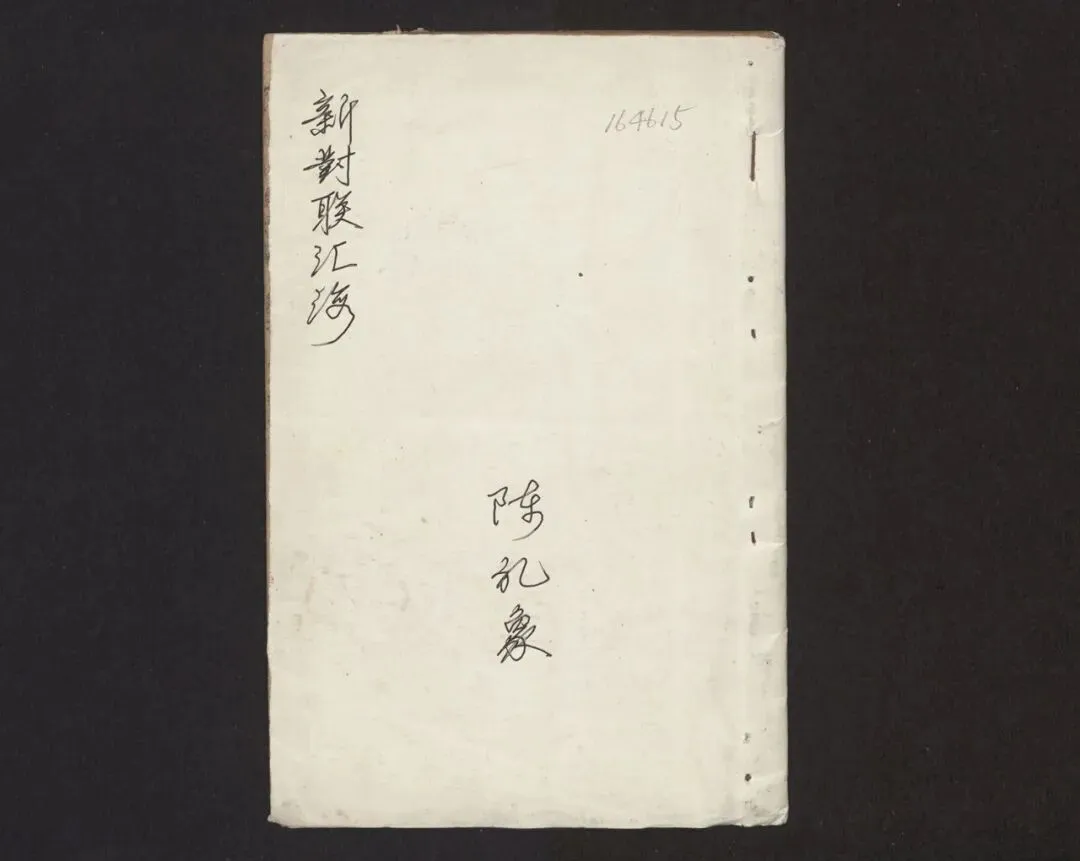 164615
新對联汇海
陈礼象